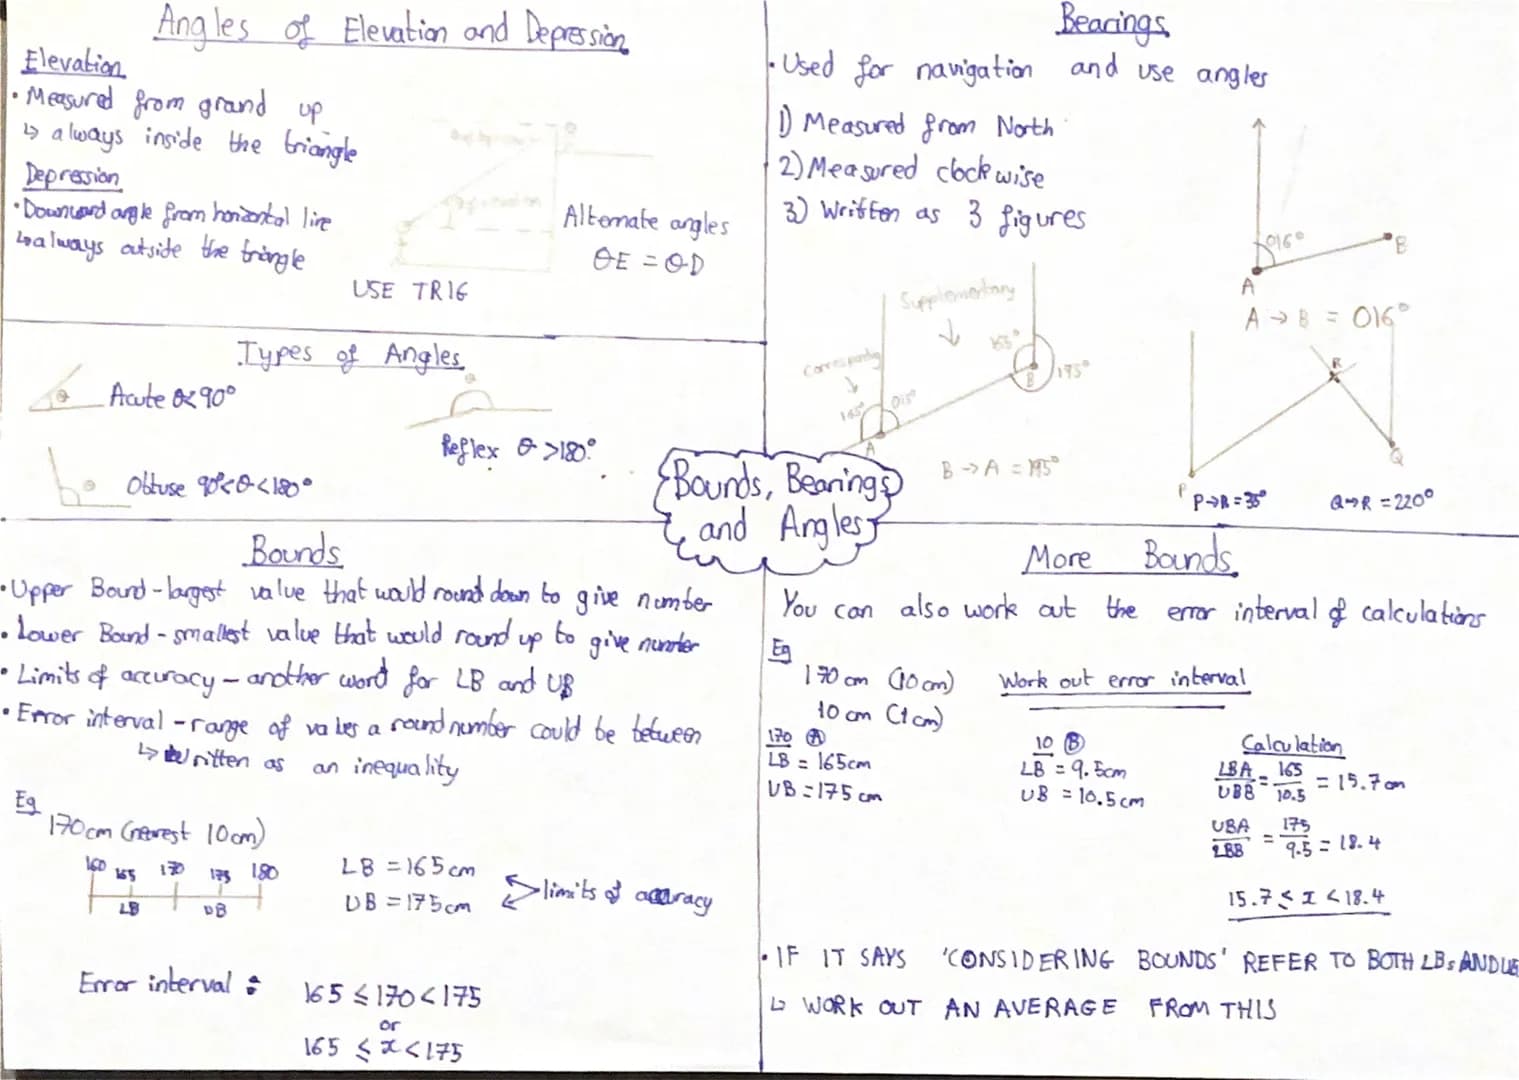 Angles of Elevation and Depression
Elevation
• Measured from ground up
↳ always inside the triangle
Depression
• Downward angle from horizontal line
↳ always outside the triangle
Alternate angles
θE = θD
USE TRIG
Types of Angles
θ Acute θ<90°
θ
Reflex θ >180°
θ Obtuse 90°<θ<180°
Bearings
• Used for navigation and use angles
1) Measured from North
2) Measured clockwise
3) Written as 3 figures
016°
A
B
A → B = 016°
Supplementary
↓
165°
B
195°
↓
165° 015°
A
B → A = 195°
R
P
Q
P→R = 35°
Q→R = 220°
Bounds, Bearings
and Angles
Bounds
• Upper Bound - largest value that would round down to give number
• Lower Bound - smallest value that would round up to give number
• Limits of accuracy - another word for LB and UB
• Error interval - range of values a round number could be between
↳ written as an inequality
Eg
170cm (nearest 10cm)
160 165 170 175 180
LB UB
LB = 165cm
UB = 175cm
limits of accuracy
Error interval :
165 ≤ 170 < 175
or
165 ≤ x < 175
More Bounds
You can also work out the error interval of calculations
Eg
170 cm (10cm)
10 cm (1cm)
Work out error interval
170 Ⓐ
LB = 165cm
UB = 175 cm
10 Ⓑ
LB = 9.5cm
UB = 10.5cm
Calculation
LBA/UBB = 165/10.5 = 15.7cm
UBA/LBB = 175/9.5 = 18.4
15.7 ≤ x < 18.4
• IF IT SAYS 'CONSIDERING BOUNDS' REFER TO BOTH LBs AND
↳ WORK OUT AN AVERAGE FROM THIS